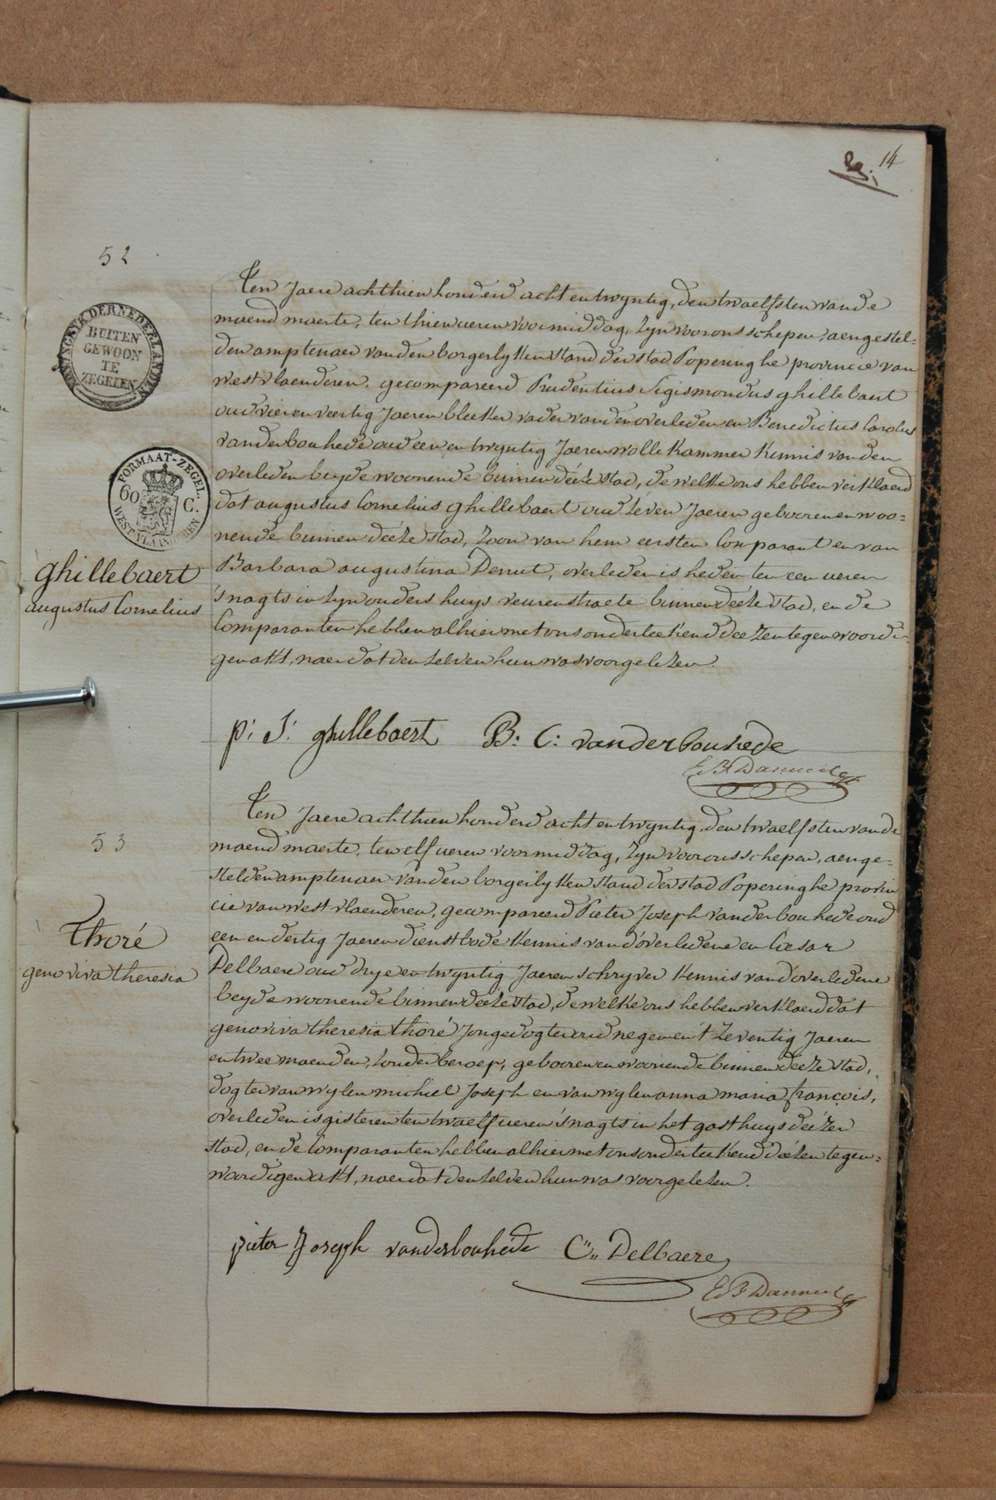 14
52
KONINGRYK DER NEDERLANDEN
BUITEN
GEWOON
TE
ZEGELEN
FORMAAT-ZEGEL.
60 C.
WEST-VLAANDEREN
ghillebaert
augustus Cornelius
Ten Jaere achthien honderd acht en twyntig, den twaelfsten van de
maend maerte, ten thien ueren voormiddag, Zyn voor ons schepen, aengestel-
den amptenaer van den borgerlyken stand der stad Poperinghe provincie van
westvlaenderen, gecompareerd Prudentius Sigismondus ghillebaert
oud vier en veertig Jaeren bleeker vader van den overleden en Benedictus Carolus
vanderbouhede oud een en twyntig Jaeren wolle kammer kennis van den
overleden beyde woonende binnen déeze stad, de welke ons hebben verklaerd
dat augustus Cornelius ghillebaert oud zeven Jaeren gebooren en woo-
nende binnen déeze stad, zoon van hem eersten Comparant en van
Barbara augustina Denut, overleden is heden ten een ueren
's nagts in zyn ouders huys veurenstraete binnen déeze stad, en de
Comparanten hebben alhier met ons onderteekend déezen tegenwoordi-
gen akt, naer dat den zelven hun was voorgelezen.
p: S: ghillebaert B: C: vanderbouhede
53
Thoré
genoviva theresia
Ten Jaere achthien honderd acht en twyntig, den twaelfsten van de
maend maerte, ten elf ueren voormiddag, Zyn voor ons schepen, aenge-
stelden amptenaer van den borgerlyken stand der stad Poperinghe provin
cie van westvlaenderen, gecompareerd Pieter Joseph vanderbouhede oud
een en dertig Jaeren dienstbode kennis van d'overledene en Cæsar
Delbaere oud drye en twyntig Jaeren schryver kennis van d'overledene
beyde woonende binnen déeze stad, de welke ons hebben verklaerd dat
genoviva theresia thoré Jongedogter oud negen en t'zeventig Jaeren
en twee maenden, zonder beroep, gebooren en woonende binnen déeze stad,
dogter van wylen michiel Joseph en van wylen anna maria françois,
overleden is gisteren ten twaelf ueren 's nagts in het gasthuys déezer
stad, en de Comparanten hebben alhier met ons onderteekend déezen tegen-
woordigen akt, naer dat den zelven hun was voorgelezen.
pieter Joseph vanderbouhéde C:, Delbaere